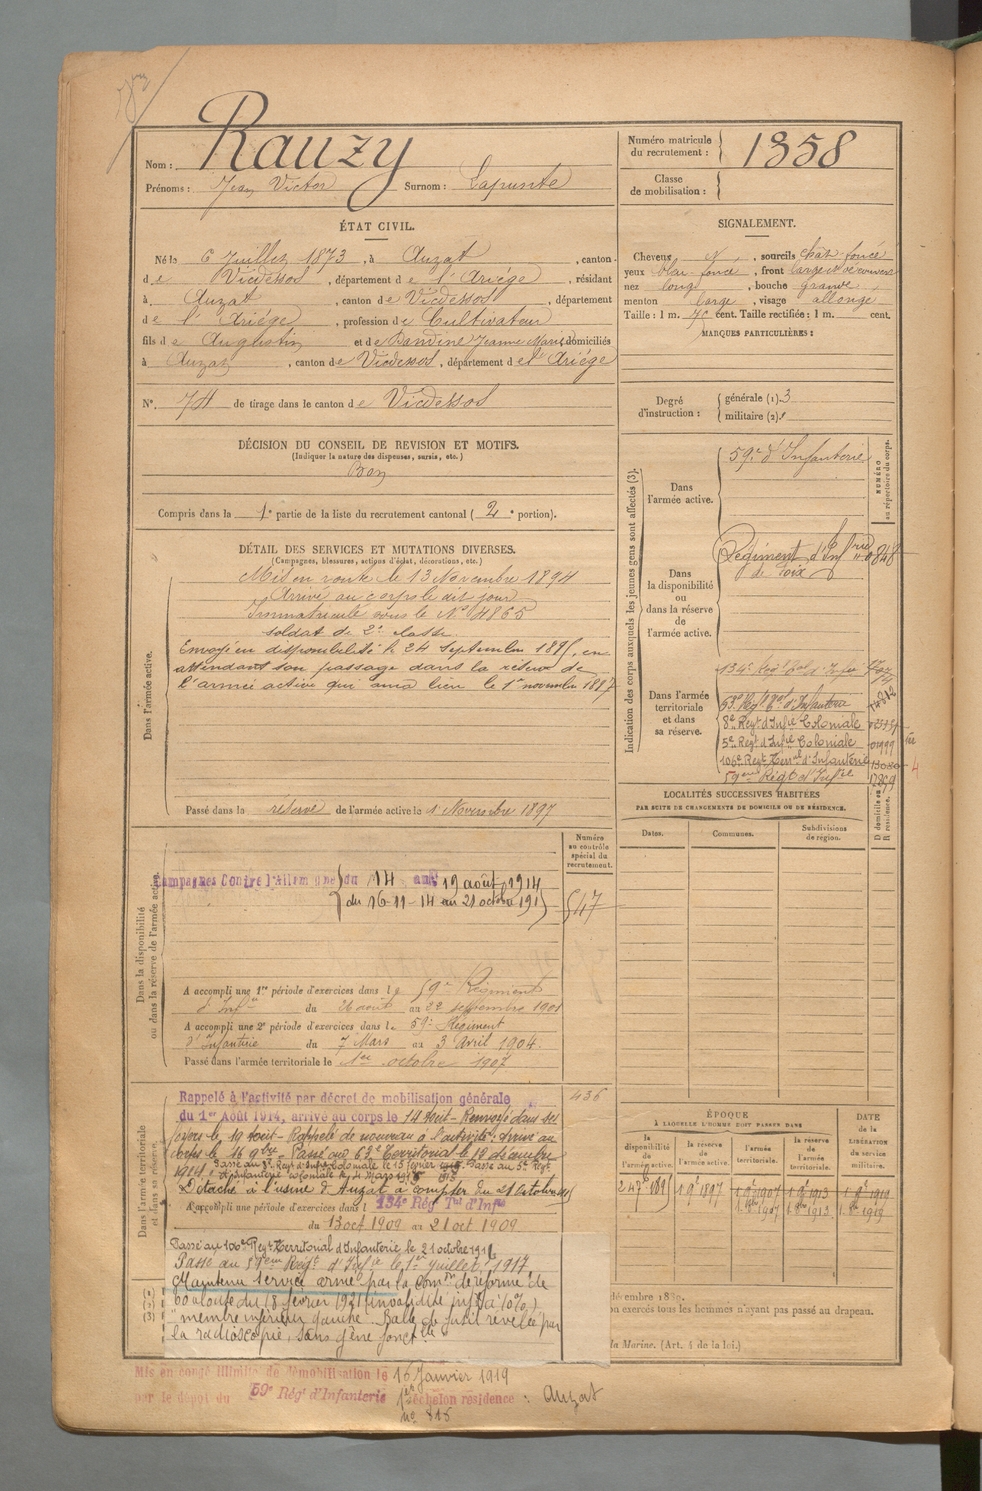 Nom : Rauzy
Prénoms : Jean Victor Surnom : Lapunte
Numéro matricule du recrutement : 1358
Classe de mobilisation :
ÉTAT CIVIL.
Né le 6 Juillet 1873, à Auzat, canton
de Vicdessos, département de l'Ariége, résidant
à Auzat, canton de Vicdessos, département
de l'Ariége, profession de Cultivateur
fils de Augustin et de Dandine Jeanne Marie, domiciliés
à Auzat, canton de Vicdessos, département de l'Ariége
N° 74 de tirage dans le canton de Vicdessos
SIGNALEMENT.
Cheveux N, sourcils chât. foncé
yeux bleu foncé, front large
nez long, bouche grande
menton large, visage allongé
Taille : 1 m. 70 cent. Taille rectifiée : 1 m. cent.
MARQUES PARTICULIÈRES :
Degré d'instruction : générale (1). 3
militaire (2).
DÉCISION DU CONSEIL DE REVISION ET MOTIFS.
(Indiquer la nature des dispenses, sursis, etc.)
Bon
Compris dans la 1e partie de la liste du recrutement cantonal (2e portion).
DÉTAIL DES SERVICES ET MUTATIONS DIVERSES.
(Campagnes, blessures, actions d'éclat, décorations, etc.)
Dans l'armée active.
Mis en route le 13 Novembre 1894
Arrivé au corps le dit jour
Immatriculé sous le N° 4865
soldat de 2e classe
Envoyé en disponibilité le 24 septembre 1895, en
attendant son passage dans la réserve de
l'armée active qui aura lieu le 1er novembre 1897
Passé dans la réserve de l'armée active le 1 Novembre 1897
Indication des corps auxquels les jeunes gens sont affectés (3).
NUMÉRO au répertoire du corps.
Dans l'armée active.
59e d'Infanterie
Dans la disponibilité ou dans la réserve de l'armée active.
Régiment d'Infrie
de Foix
Dans l'armée territoriale et dans sa réserve.
134e Regt
63e Regt Tal d'Infanterie
8e Regt d'Infie Coloniale
5e Regt d'Infie Coloniale 01999
106e Regt Terral d'Infanterie 13080
59ème Regt d'Infie
LOCALITÉS SUCCESSIVES HABITÉES
PAR SUITE DE CHANGEMENTS DE DOMICILE OU DE RÉSIDENCE.
Dates. Communes. Subdivisions de région. D domicile ou R résidence.
Dans la disponibilité ou dans la réserve de l'armée active.
Numéro au contrôle spécial du recrutement.
547
Campagnes Contre l'Allemagne du 14 au 19 août 1914
du 16-11-14 au 21 octobre 191
A accompli une 1re période d'exercices dans le 59e Régiment
d'Infie du 26 août au 22 septembre 1901
A accompli une 2e période d'exercices dans le 59e Régiment
d'Infanterie du 7 Mars au 3 Avril 1904.
Passé dans l'armée territoriale le 1er octobre 1907
Dans l'armée territoriale et dans sa réserve.
436
Rappelé à l'activité par décret de mobilisation générale
du 1er Août 1914, arrivé au corps le 14 Août - Renvoyé dans ses
foyers le 19 Août - Rappelé de nouveau à l'activité : arrivé au
corps le 16 9bre - Passé au 63e Territorial le 12 décembre
1914. Passé au 8e Regt d'Infie Coloniale le 15 février 1915. Passé au 5e Regt
d'Infanterie coloniale le 4 Mars 1915
Détaché à l'usine d'Auzat à compter du 21 octobre
A accompli une période d'exercices dans le 134e Rég Tal d'Infie
du 13 oct 1909 au 21 oct 1909
Passé au 106e Regt Territorial d'Infanterie le 21 octobre 191
Passé au 59ème Regt d'Infie le 1er juillet 1917
Maintenu service armé par la comon de réforme de
du 18 février 1921 invalidité infre à 10%
membre inférieur gauche. Balle de fusil révélée par
la radioscopie, sans gêne fonctlle
ÉPOQUE
À LAQUELLE L'HOMME DOIT PASSER DANS
la disponibilité de l'armée active.
la réserve de l'armée active.
l'armée territoriale.
la réserve de l'armée territoriale.
DATE de la LIBÉRATION du service militaire.
1 9bre 1897
1 9bre 1907
1 9bre 1913
1 9bre 1919
1. 8bre 1907
1. 8bre 1913
1. 8bre 1919
on exercés tous les hommes n'ayant pas passé au drapeau.
la Marine. (Art. 4 de la loi.)
(1)
(2)
(3)
Mis en congé illimité de démobilisation le 16 Janvier 1919
par le dépôt du 59e Rég' d'Infanterie 1er échelon résidence : Auzat
n° 815